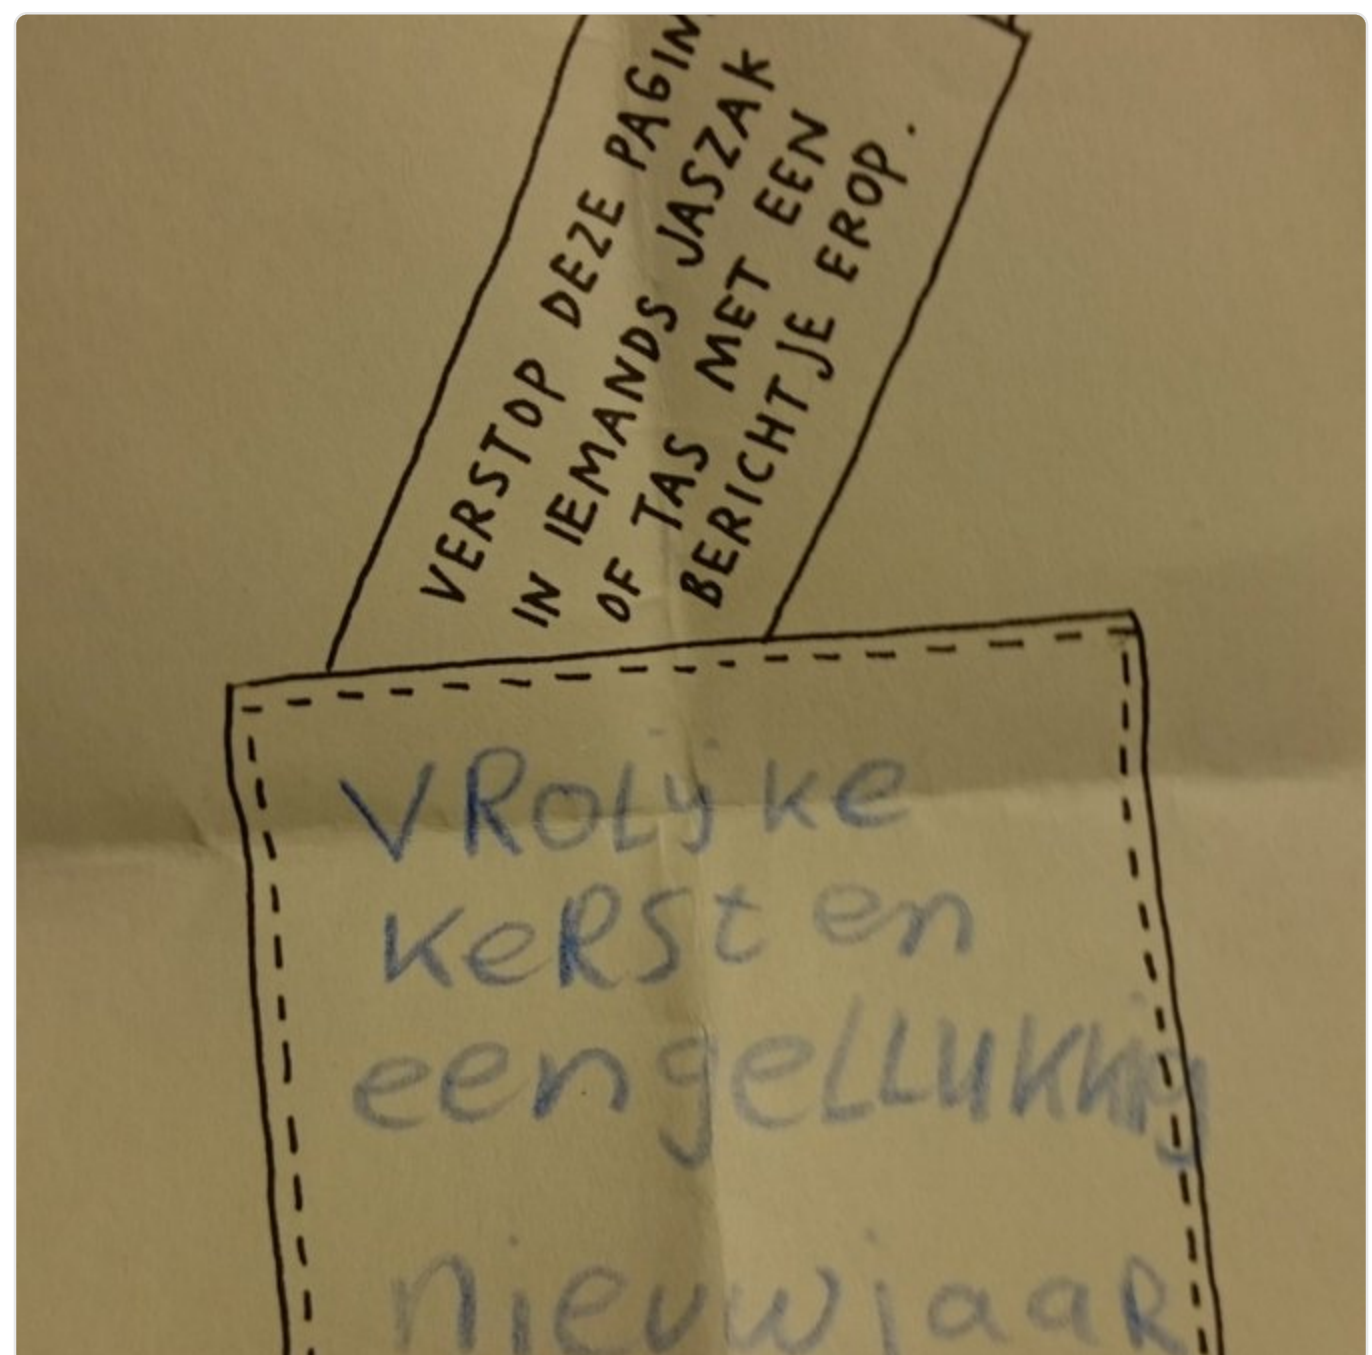 VERSTOP DEZE PAGIN
IN IEMANDS JASZAK
OF TAS MET EEN
BERICHTJE EROP.
VROLijke
KeRSt en
een geLLukkig
nieuwjaaR